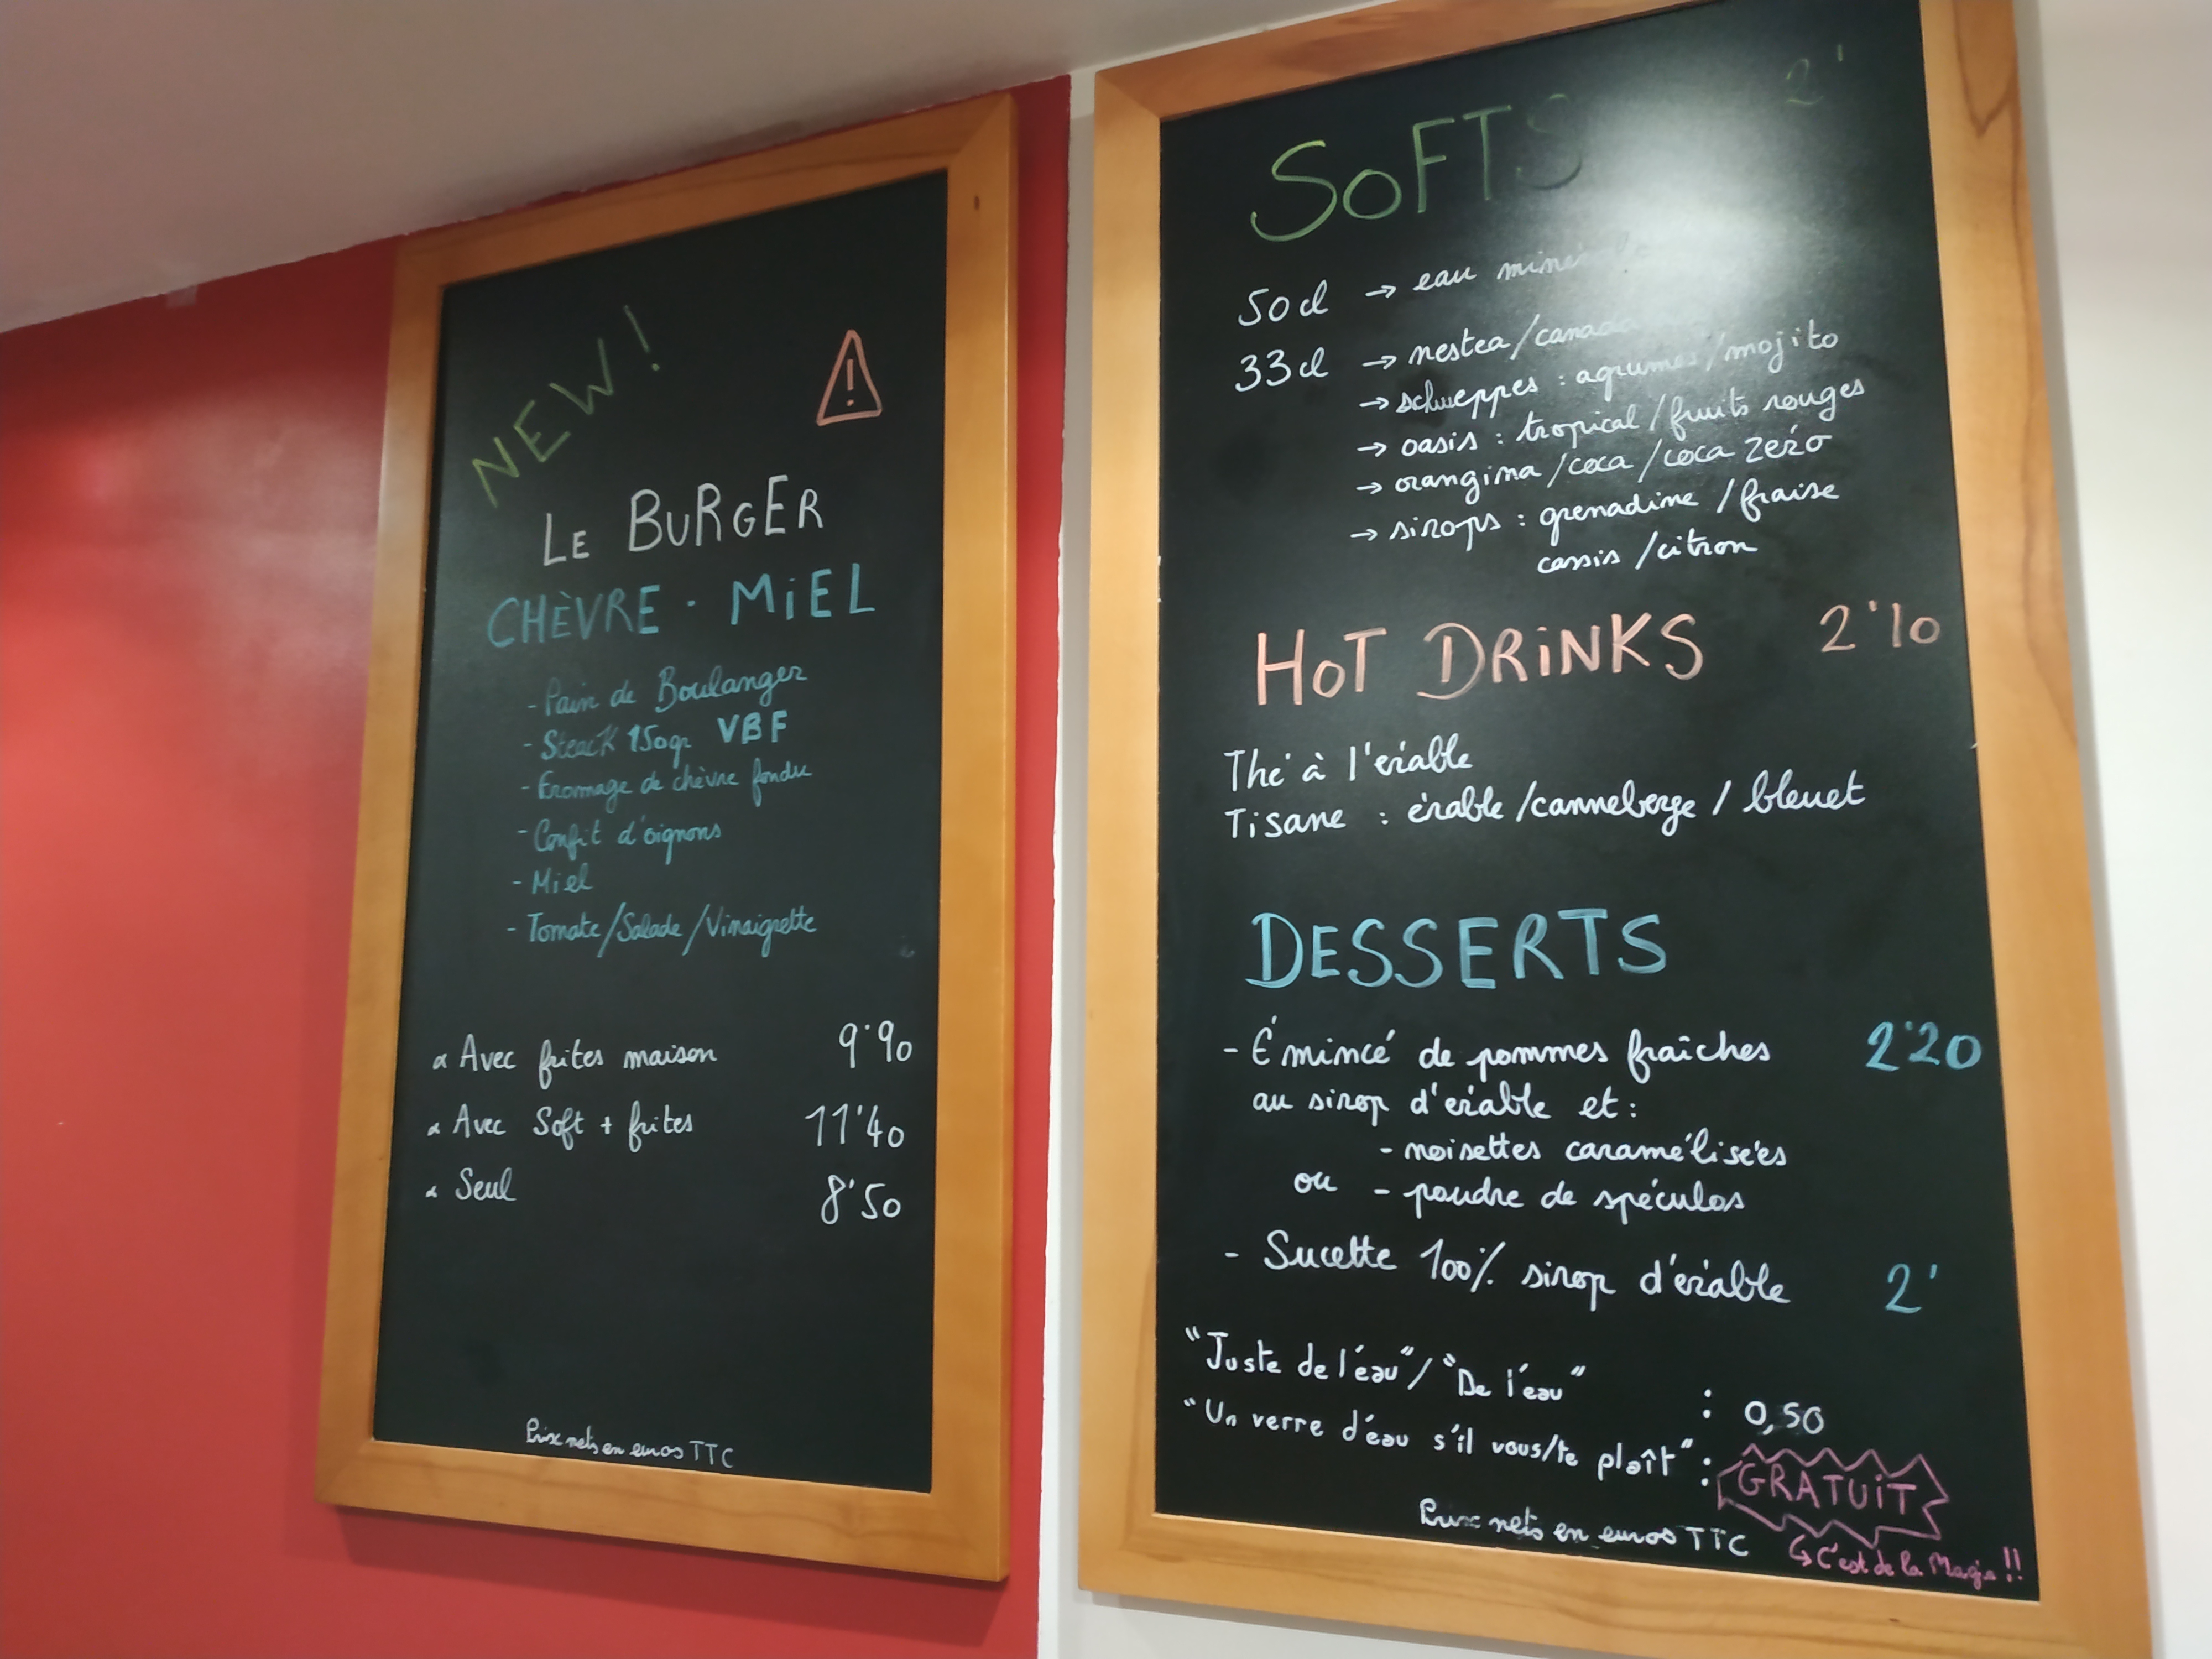 NEW!
LE BURGER
CHÈVRE · MIEL
- Pain de Boulanger
- Steack 150gr VBF
- Fromage de chèvre fondu
- Confit d'oignons
- Miel
- Tomate/Salade/Vinaigrette
Avec frites maison 9'90
Avec Soft + frites 11'40
Seul 8'50
Prix nets en euros TTC
SOFTS 2'
50cl → eau
33cl → nestea/canada
→ schweppes : agrumes/mojito
→ oasis : tropical/fruits rouges
→ orangina/coca/coca zéro
→ sirops : grenadine/fraise
cassis/citron
HOT DRINKS 2'10
Thé à l'érable
Tisane : érable/canneberge/bleuet
DESSERTS
- Émincé de pommes fraîches 2'20
au sirop d'érable et :
- noisettes caramélisées
ou - poudre de spéculos
- Sucette 100% sirop d'érable 2'
"Juste de l'éau"/"De l'éau" : 0,50
"Un verre d'éau s'il vous/te plaît" : GRATUIT
Prix nets en euros TTC
↳ C'est de la Magie !!